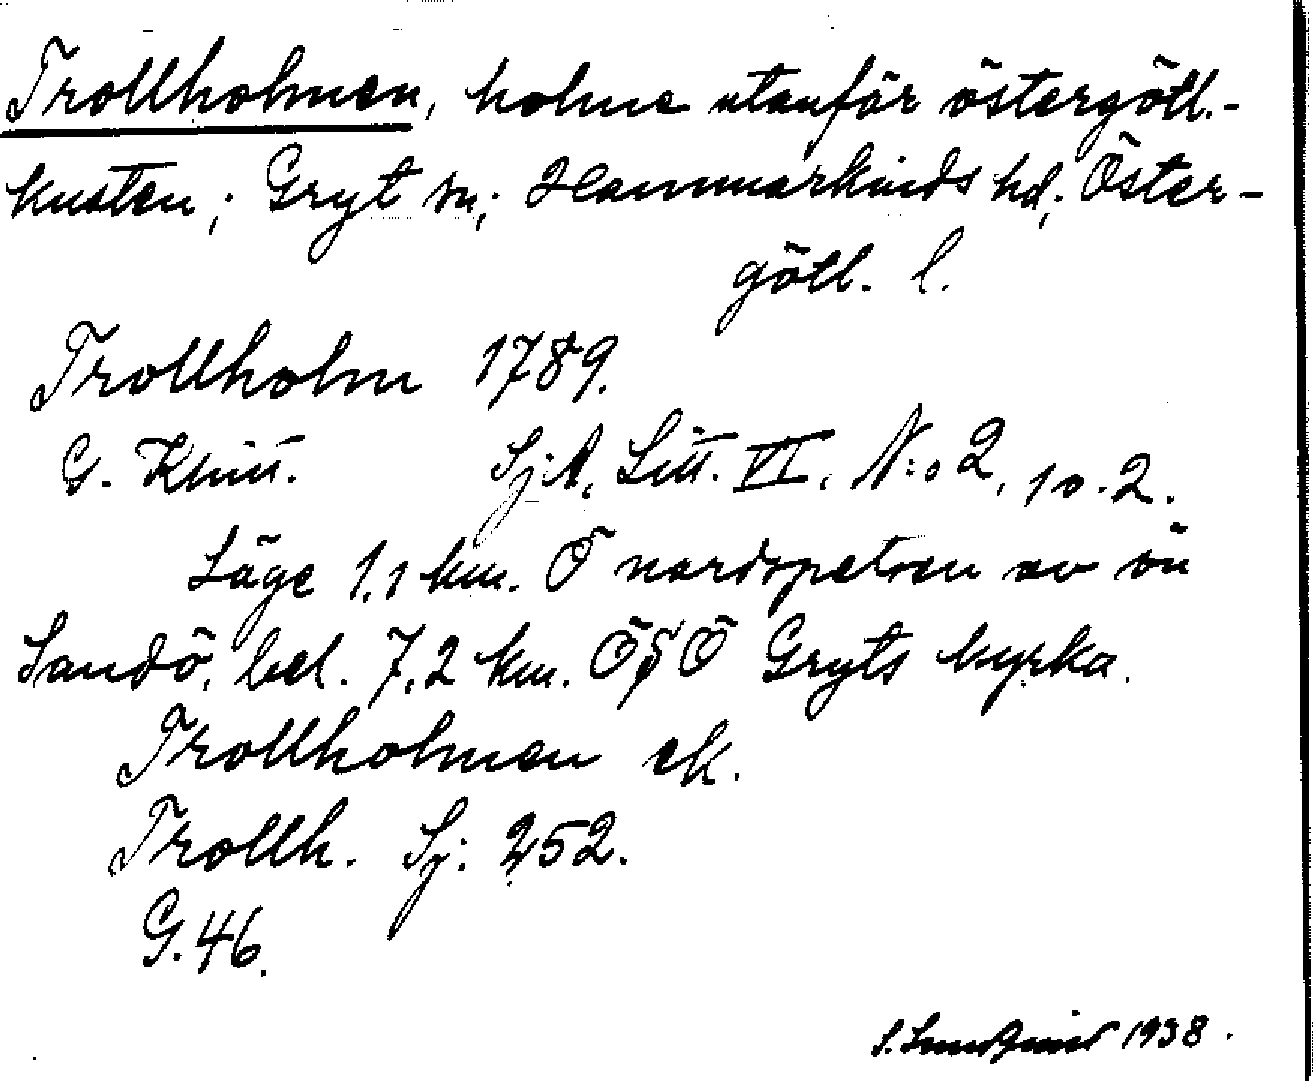 Trollholmen, holme utanför östergötl.-
kusten; Gryt sn; Hammarkinds hd; Öster-
götl. l.
Trollholm 1789.
G. Klint. Sj:A, Litt. VI, N:o 2, 10.2.
Läge 1,1 km. Ö nordspetsen av ön
Sandö, bel. 7,2 km. ÖSÖ Gryts kyrka.
Trollholmen ek.
Trollh. Sj: 252.
G. 46.
S. 1938.